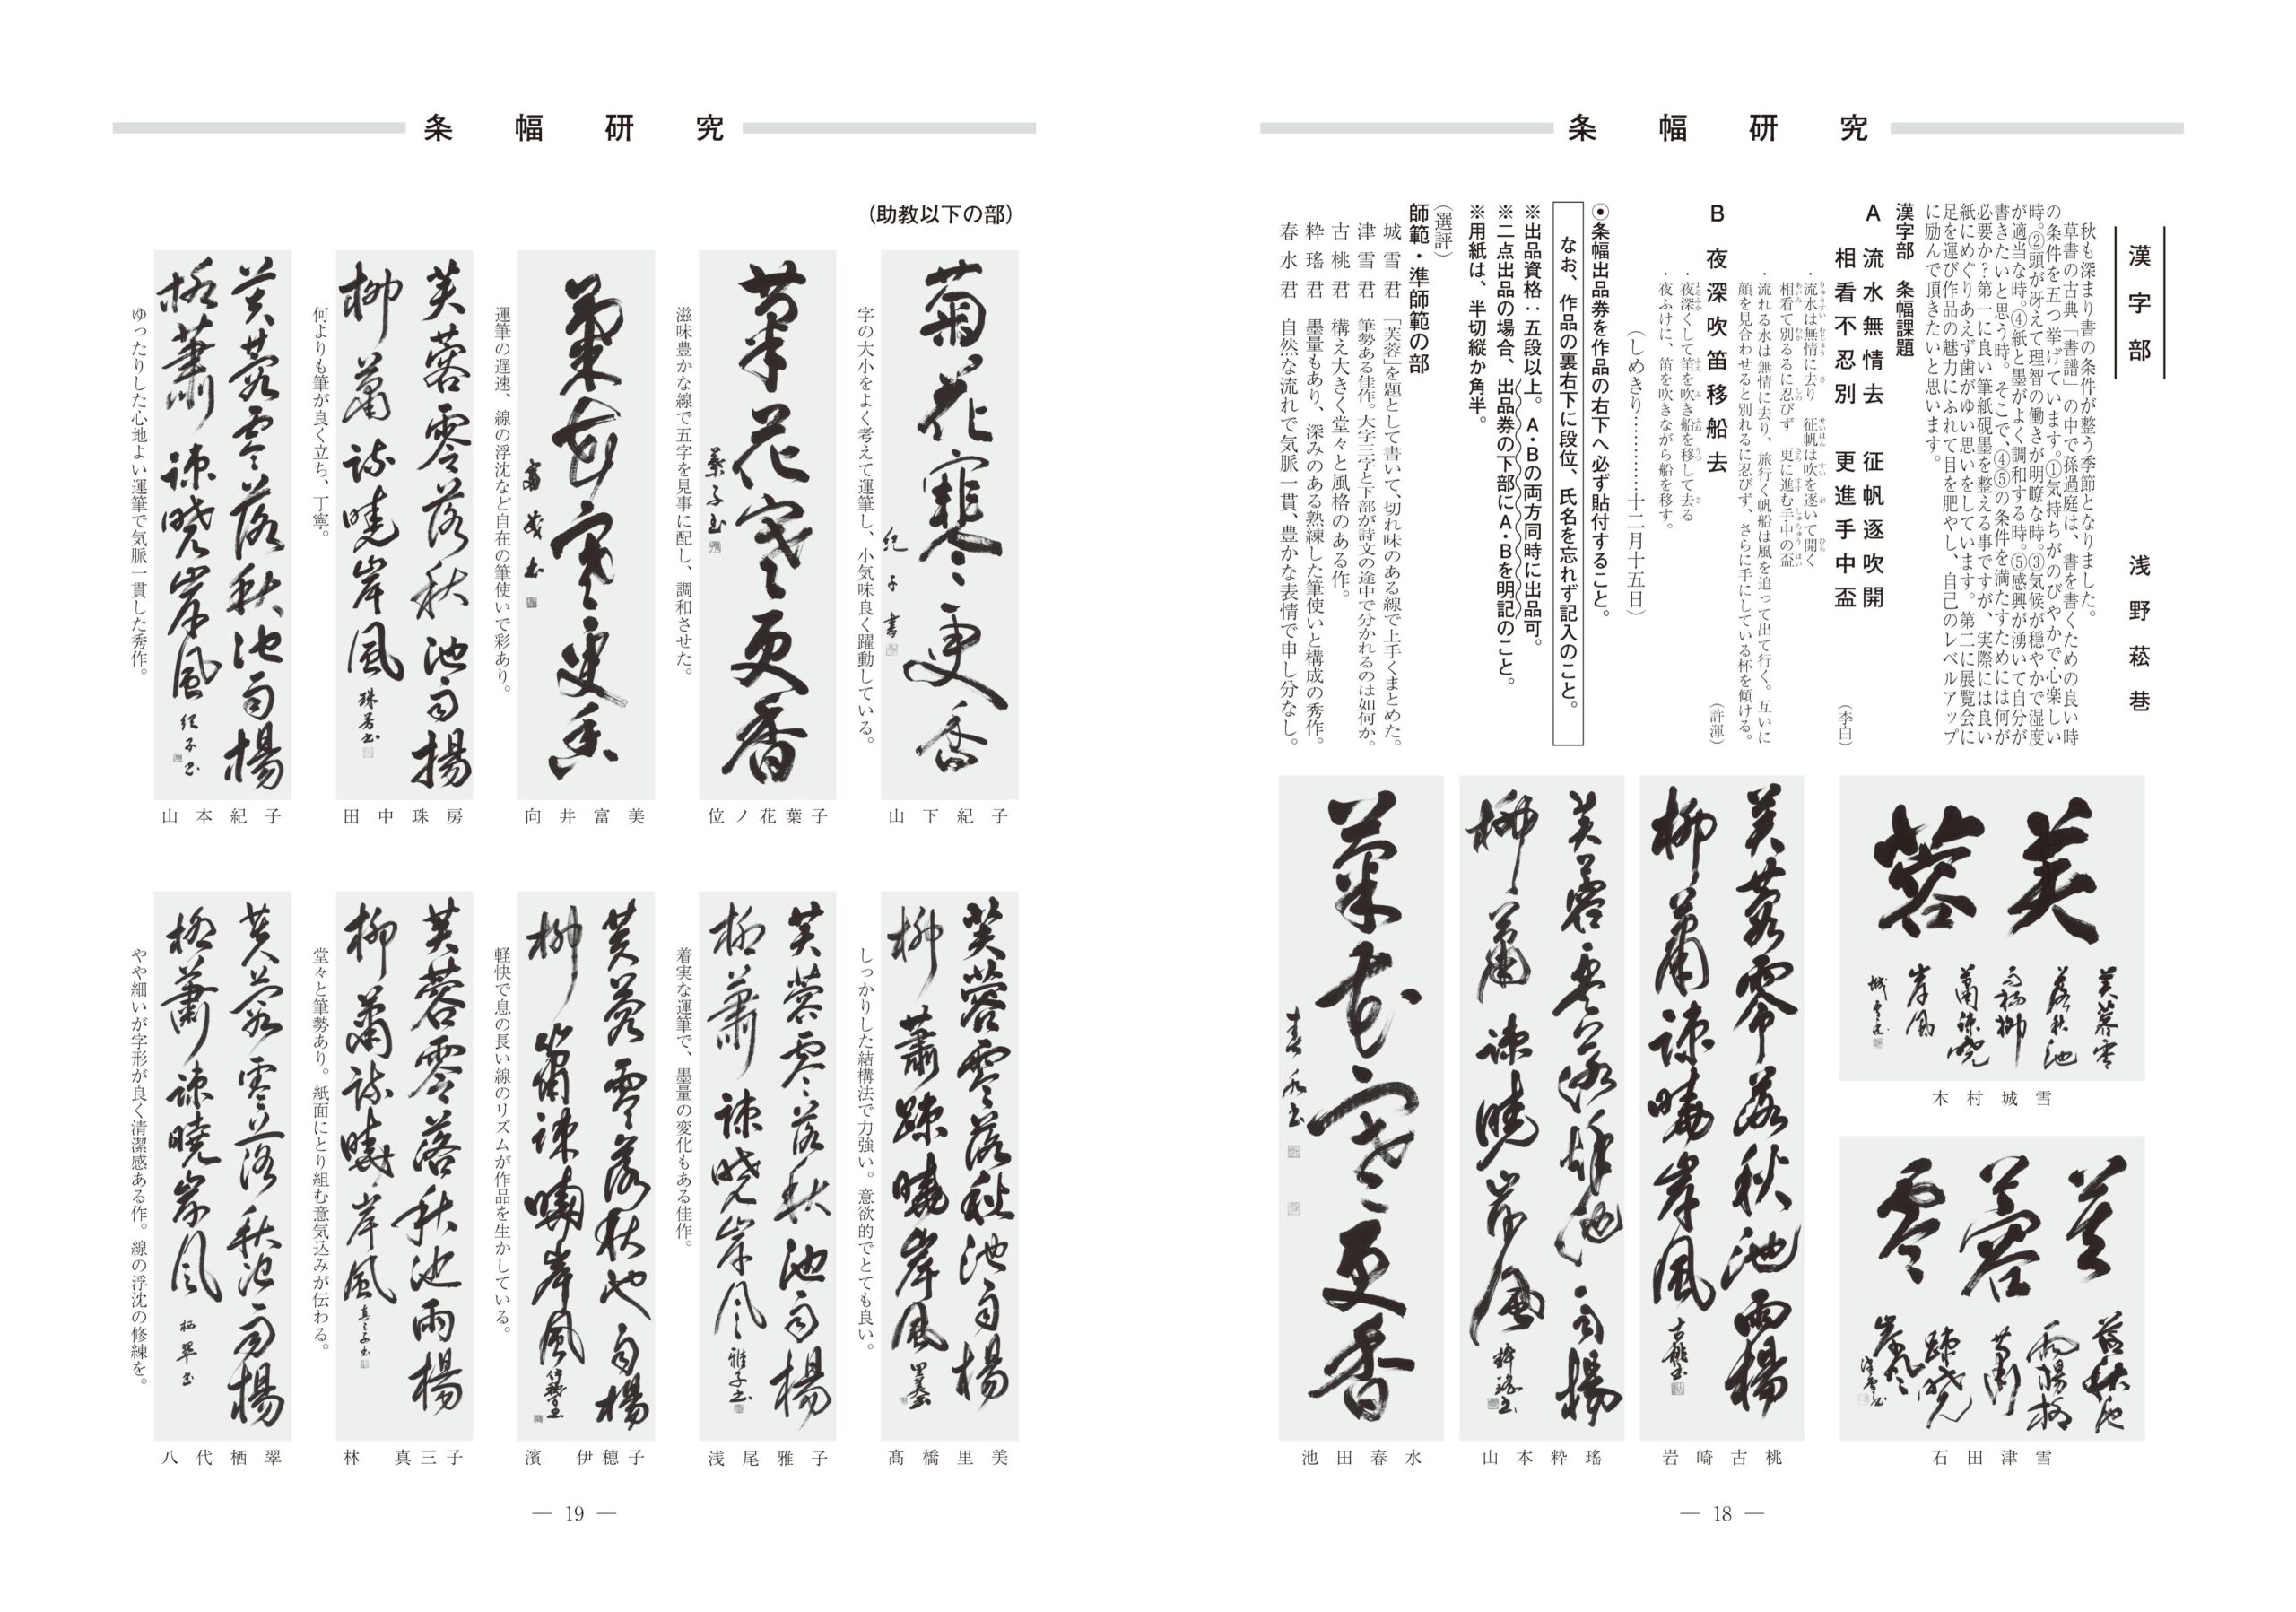 条幅研究
漢字部
浅野菘巷
秋も深まり書の条件が整う季節となりました。
草書の古典、「書譜」の中で孫過庭は、書を書くための良い時
の条件を五つ挙げています。①気持ちがのびやかで心楽しい
時。②頭が冴えて理智の働きが明瞭な時。③気候が穏やかで湿度
が適当な時。④紙と墨がよく調和する時。⑤感興が湧いて自分が
書きたいと思う時。そこで、④⑤の条件を満たすためには何が
必要か?第一に良い筆紙硯墨を整える事ですが、実際には良い
紙にめぐりあえず歯がゆい思いをしています。第二に展覧会に
足を運び作品の魅力にふれて目を肥やし、自己のレベルアップ
に励んで頂きたいと思います。
漢字部 条幅課題
A 流水無情去 征帆逐吹開
相看不忍別 更進手中盃
(李白)
・流水は無情に去り 征帆は吹を逐いて開く
相看て別るるに忍びず 更に進む手中の盃
・流れる水は無情に去り、旅行く帆船は風を追って出て行く。互いに
顔を見合わせると別れるに忍びず、さらに手にしている杯を傾ける。
B 夜深吹笛移船去
(許渾)
・夜深くして笛を吹き船を移して去る
・夜ふけに、笛を吹きながら船を移す。
(しめきり…………十二月十五日)
◉条幅出品券を作品の右下へ必ず貼付すること。
なお、作品の裏右下に段位、氏名を忘れず記入のこと。
※出品資格:五段以上。A・Bの両方同時に出品可。
※二点出品の場合、出品券の下部にA・Bを明記のこと。
※用紙は、半切縦か角半。
(選評)
師範・準師範の部
城雪君 「芙蓉」を題として書いて、切れ味のある線で上手くまとめた。
津雪君 筆勢ある佳作。大字三字と下部が詩文の途中で分かれるのは如何か。
古桃君 構え大きく堂々と風格のある作。
粋瑤君 墨量もあり、深みのある熟練した筆使いと構成の秀作。
春水君 自然な流れで気脈一貫、豊かな表情で申し分なし。
芙蓉
芙蓉零
落秋池
雨楊柳
蕭疎暁
岸風
城雪書
木村城雪
芙蓉零
落秋池
雨楊柳
蕭
疎暁
岸風
石田津雪
芙蓉零落秋池雨楊
柳蕭疎暁岸風
古桃書
岩崎古桃
芙蓉零落秋池雨楊
柳蕭疎暁岸風
粋瑤書
山本粋瑤
菊花寒更香
春水書
池田春水
— 18 —
条幅研究
(助教以下の部)
菊花寒更香
紀子書
字の大小をよく考えて運筆し、小気味良く躍動している。
山下紀子
菊花寒更香
葉子書
滋味豊かな線で五字を見事に配し、調和させた。
位ノ花葉子
菊花寒更香
富美書
運筆の遅速、線の浮沈など自在の筆使いで彩あり。
向井富美
芙蓉零落秋池雨楊
柳蕭疎暁岸風
珠房書
何よりも筆が良く立ち、丁寧。
田中珠房
芙蓉零落秋池雨楊
柳蕭疎暁岸風
紀子書
ゆったりした心地よい運筆で気脈一貫した秀作。
山本紀子
芙蓉零落秋池雨楊
柳蕭疎暁岸風
しっかりした結構法で力強い。意欲的でとても良い。
髙橋里美
芙蓉零落秋池雨楊
柳蕭疎暁岸風
雅子書
着実な運筆で、墨量の変化もある佳作。
浅尾雅子
芙蓉零落秋池雨楊
柳蕭疎暁岸風
軽快で息の長い線のリズムが作品を生かしている。
濱伊穂子
芙蓉零落秋池雨楊
柳蕭疎暁岸風
真三子書
堂々と筆勢あり。紙面にとり組む意気込みが伝わる。
林真三子
芙蓉零落秋池雨楊
柳蕭疎暁岸風
栖翠書
やや細いが字形が良く清潔感ある作。線の浮沈の修練を。
八代栖翠
— 19 —